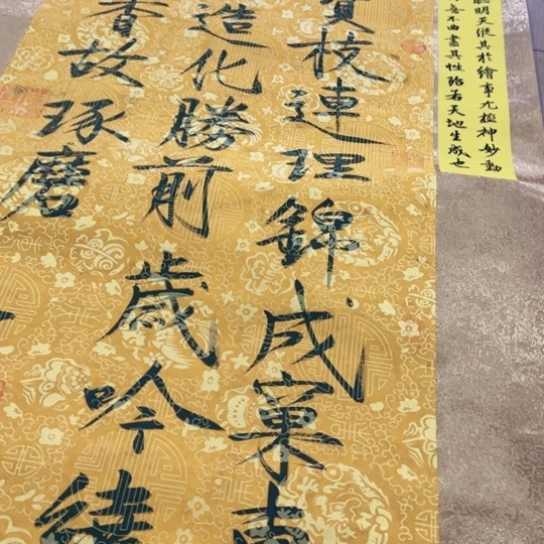 明天縱其於繪事尤極神妙動
無不曲盡其性殆若天地生成也
枝連理錦成窠
造化勝前歲吟繞
香故琢磨